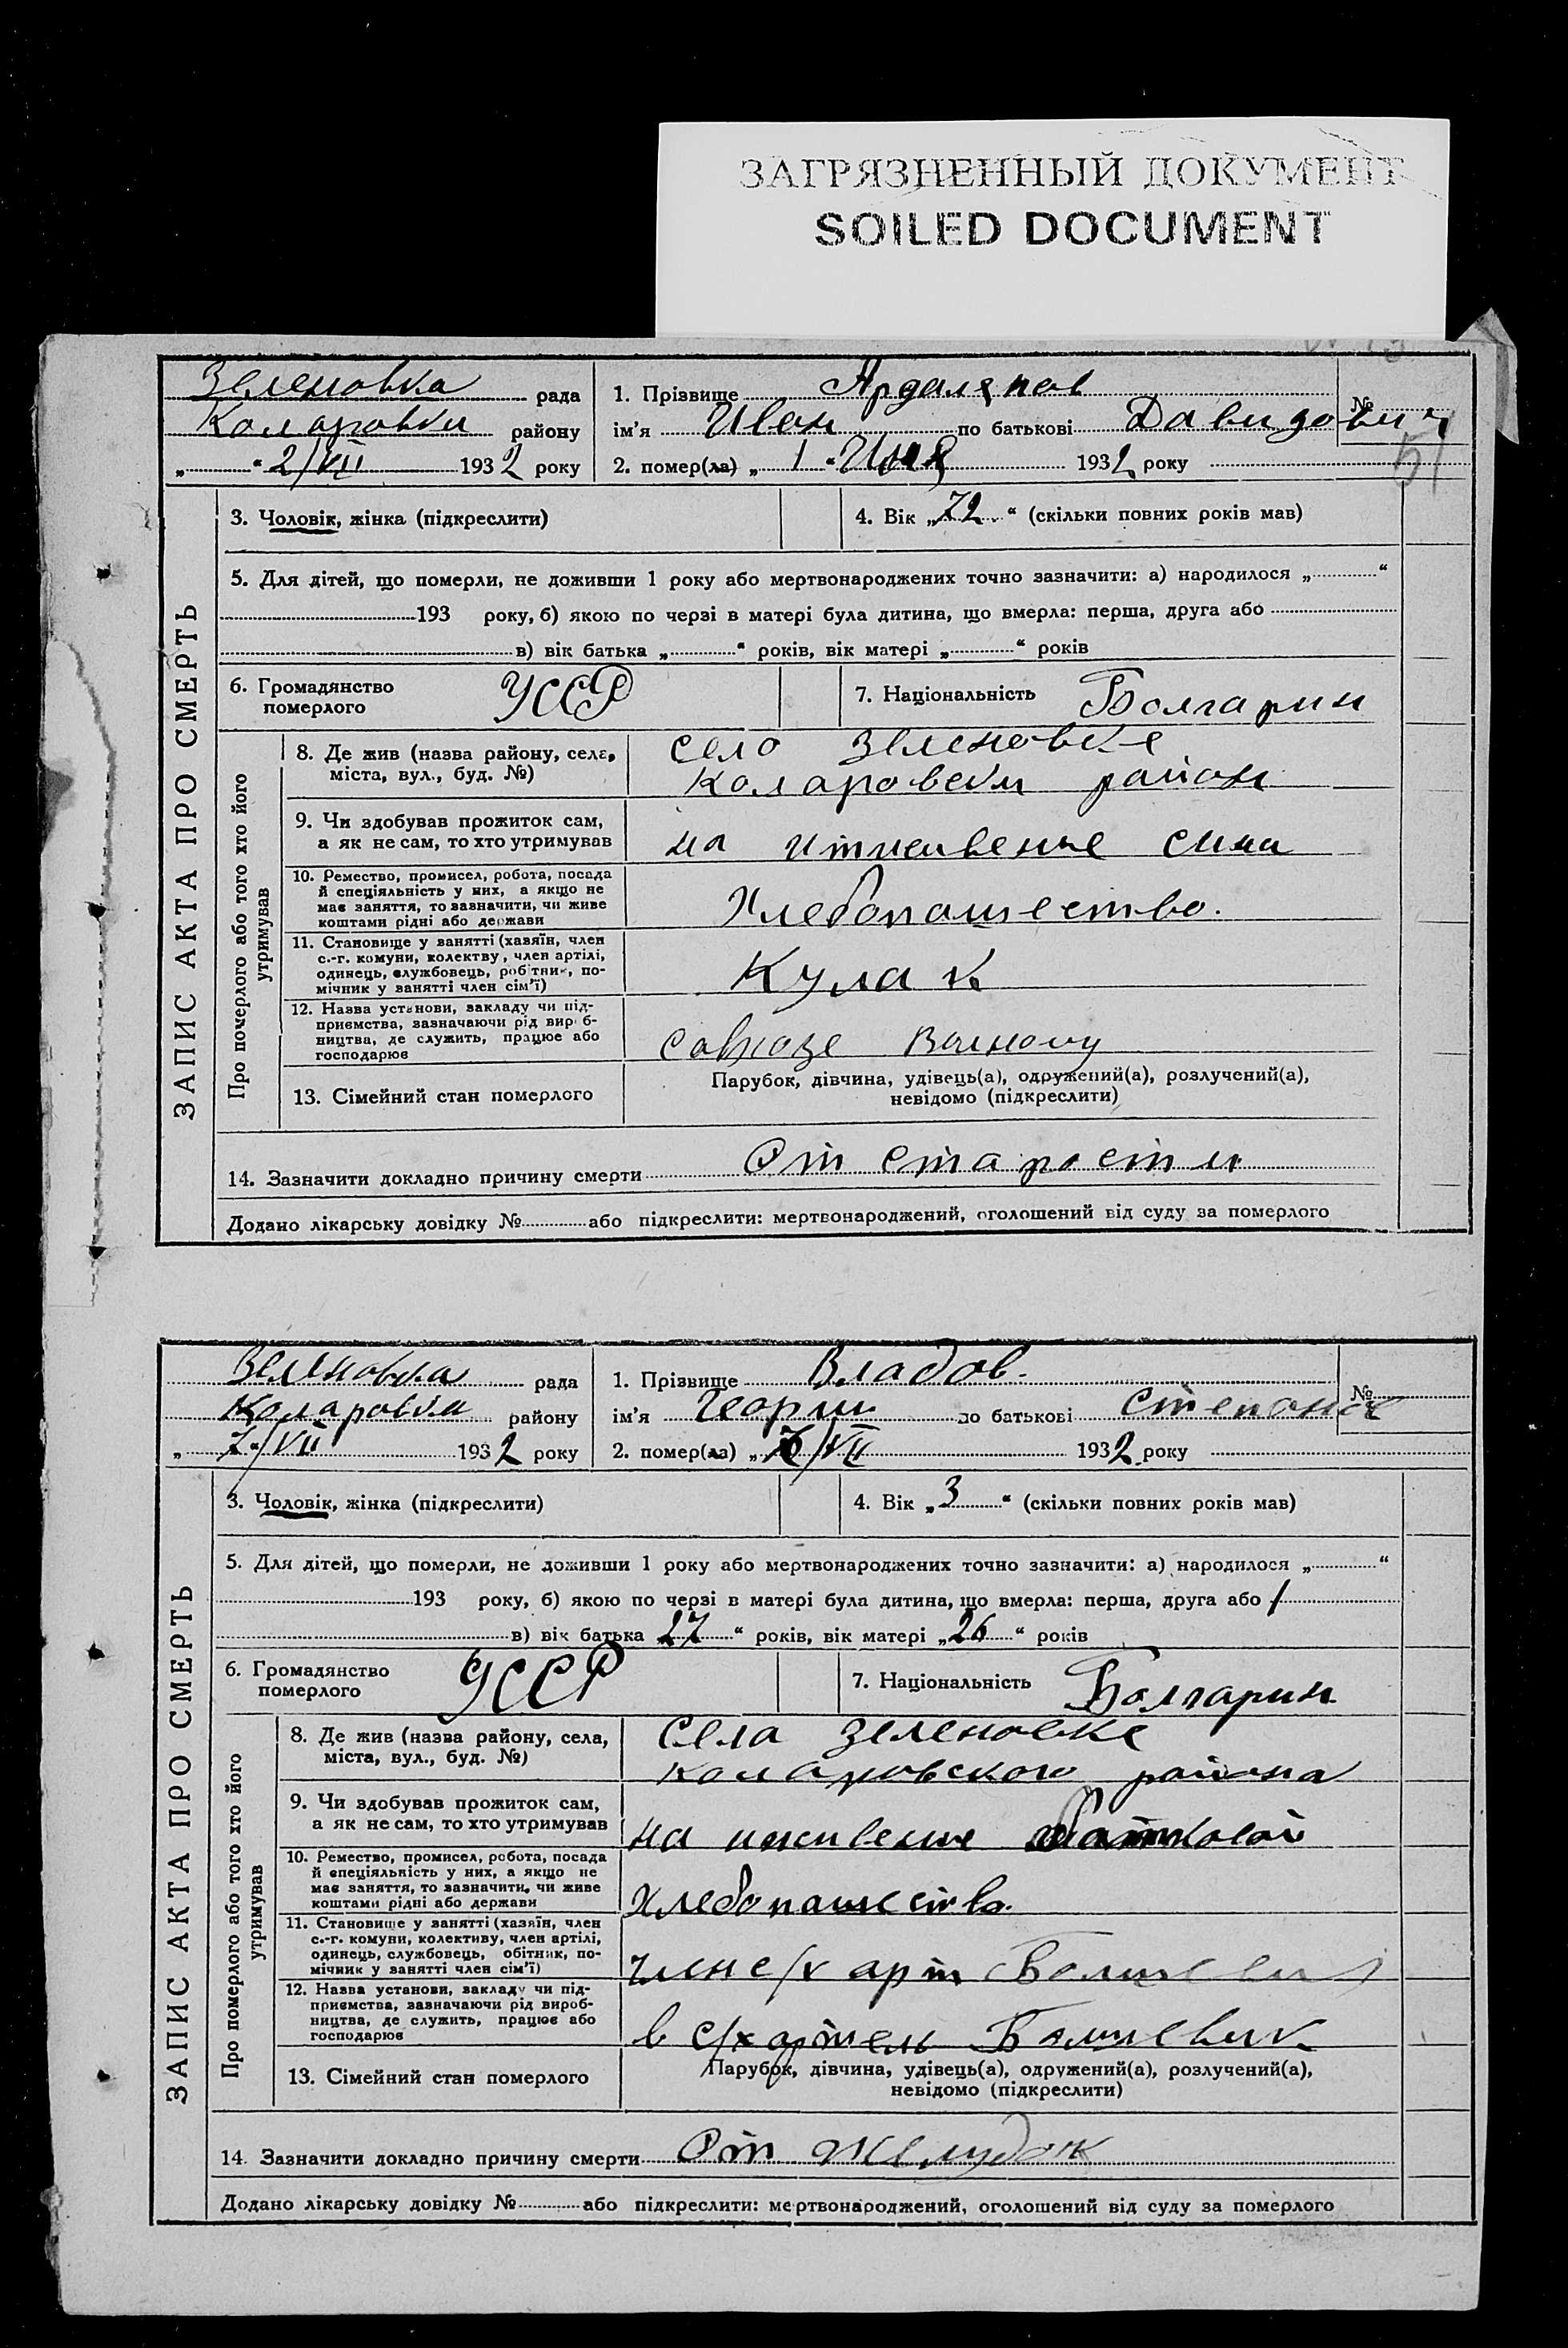 ЗАГРЯЗНЕННЫЙ ДОКУМЕНТ
SOILED DOCUMENT
Зеленовка рада
Коларовки району
„ “ 2/VII 1932 року
1. Прізвище Ардаляпов
№
ім’я Иван по батькові Давидович
2. помер(ла) „ 1 “ 1932 року
51
ЗАПИС АКТА ПРО СМЕРТЬ
3. Чоловік, жінка (підкреслити)
4. Вік „72“ (скільки повних років мав)
5. Для дітей, що померли, не доживши 1 року або мертвонароджених точно зазначити: а) народилося „ “
193 року, б) якою по черзі в матері була дитина, що вмерла: перша, друга або
в) вік батька „ “ років, вік матері „ “ років
6. Громадянство
померлого
УССР
7. Національність Болгарин
Про померлого або того хто його
утримував
8. Де жив (назва району, села,
міста, вул., буд. №)
село Зеленовке
Коларовски район
9. Чи здобував прожиток сам,
а як не сам, то хто утримував
на сина
10. Ремество, промисел, робота, посада
й спеціяльність у них, а якщо не
має заняття, то зазначити, чи живе
коштами рідні або держави
Хлебопашество.
11. Становище у занятті (хазяїн, член
с.-г. комуни, колектву, член артілі,
одинець, службовець, робітник, по-
мічник у занятті член сім’ї)
Кулак
12. Назва установи, закладу чи під-
приємства, зазначаючи рід вироб-
ництва, де служить, працює або
господарює
Совхозе
13. Сімейний стан померлого
Парубок, дівчина, удівець(а), одружений(а), розлучений(а),
невідомо (підкреслити)
14. Зазначити докладно причину смерти От старости
Додано лікарську довідку № або підкреслити: мертвонароджений, оголошений від суду за померлого
Зеленовка рада
Коларовки району
„ 7/VII 1932 року
1. Прізвище Владов.
№
ім’я Георги по батькові Степанов
2. помер(ла) „ /VII 1932 року
ЗАПИС АКТА ПРО СМЕРТЬ
3. Чоловік, жінка (підкреслити)
4. Вік „3“ (скільки повних років мав)
5. Для дітей, що померли, не доживши 1 року або мертвонароджених точно зазначити: а) народилося „ “
193 року, б) якою по черзі в матері була дитина, що вмерла: перша, друга або /
в) вік батька 27 “ років, вік матері „26“ років
6. Громадянство
померлого
УССР
7. Національність Болгарин
Про померлого або того хто його
утримував
8. Де жив (назва району, села,
міста, вул., буд. №)
Села Зеленовке
Коларовского района
9. Чи здобував прожиток сам,
а як не сам, то хто утримував
на
10. Ремество, промисел, робота, посада
й спеціяльність у них, а якщо не
має заняття, то зазначити, чи живе
коштами рідні або держави
Хлебопашество.
11. Становище у занятті (хазяїн, член
с.-г. комуни, колективу, член артілі,
одинець, службовець, обітник, по-
мічник у занятті член сім’ї)
член с/х арт
12. Назва установи, закладу чи під-
приємства, зазначаючи рід вироб-
ництва, де служить, працює або
господарює
в с/х артель Болшевик
13. Сімейний стан померлого
Парубок, дівчина, удівець(а), одружений(а), розлучений(а),
невідомо (підкреслити)
14. Зазначити докладно причину смерти От Желудок
Додано лікарську довідку № або підкреслити: мертвонароджений, оголошений від суду за померлого